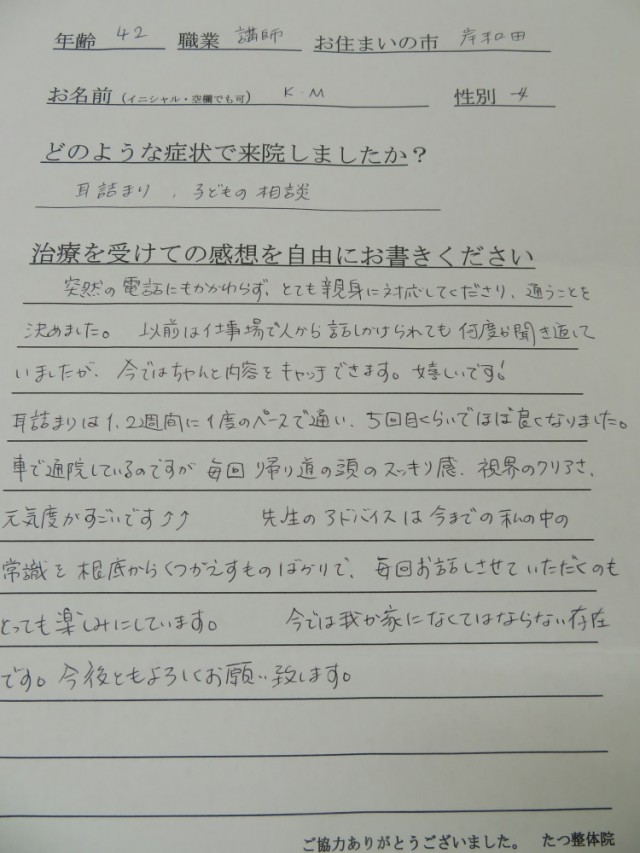 年齢 42 職業 講師 お住まいの市 岸和田
お名前 (イニシャル・空欄でも可) K.M 性別 女
どのような症状で来院しましたか?
耳詰まり、子どもの相談
治療を受けての感想を自由にお書きください
突然の電話にもかかわらず、とても親身に対応してくださり、通うことを
決めました。 以前は仕事場で人から話しかけられても何度か聞き返して
いましたが、今ではちゃんと内容をキャッチできます。嬉しいです!
耳詰まりは1、2週間に1度のペースで通い、5回目くらいでほぼ良くなりました。
車で通院しているのですが毎回帰り道の頭のスッキリ感、視界のクリアさ、
元気度がすごいです↑↑ 先生のアドバイスは今までの私の中の
常識を根底からくつがえすものばかりで、毎回お話しさせていただくのも
とっても楽しみにしています。 今では我が家になくてはならない存在
です。今後ともよろしくお願い致します。
ご協力ありがとうございました。 たつ整体院